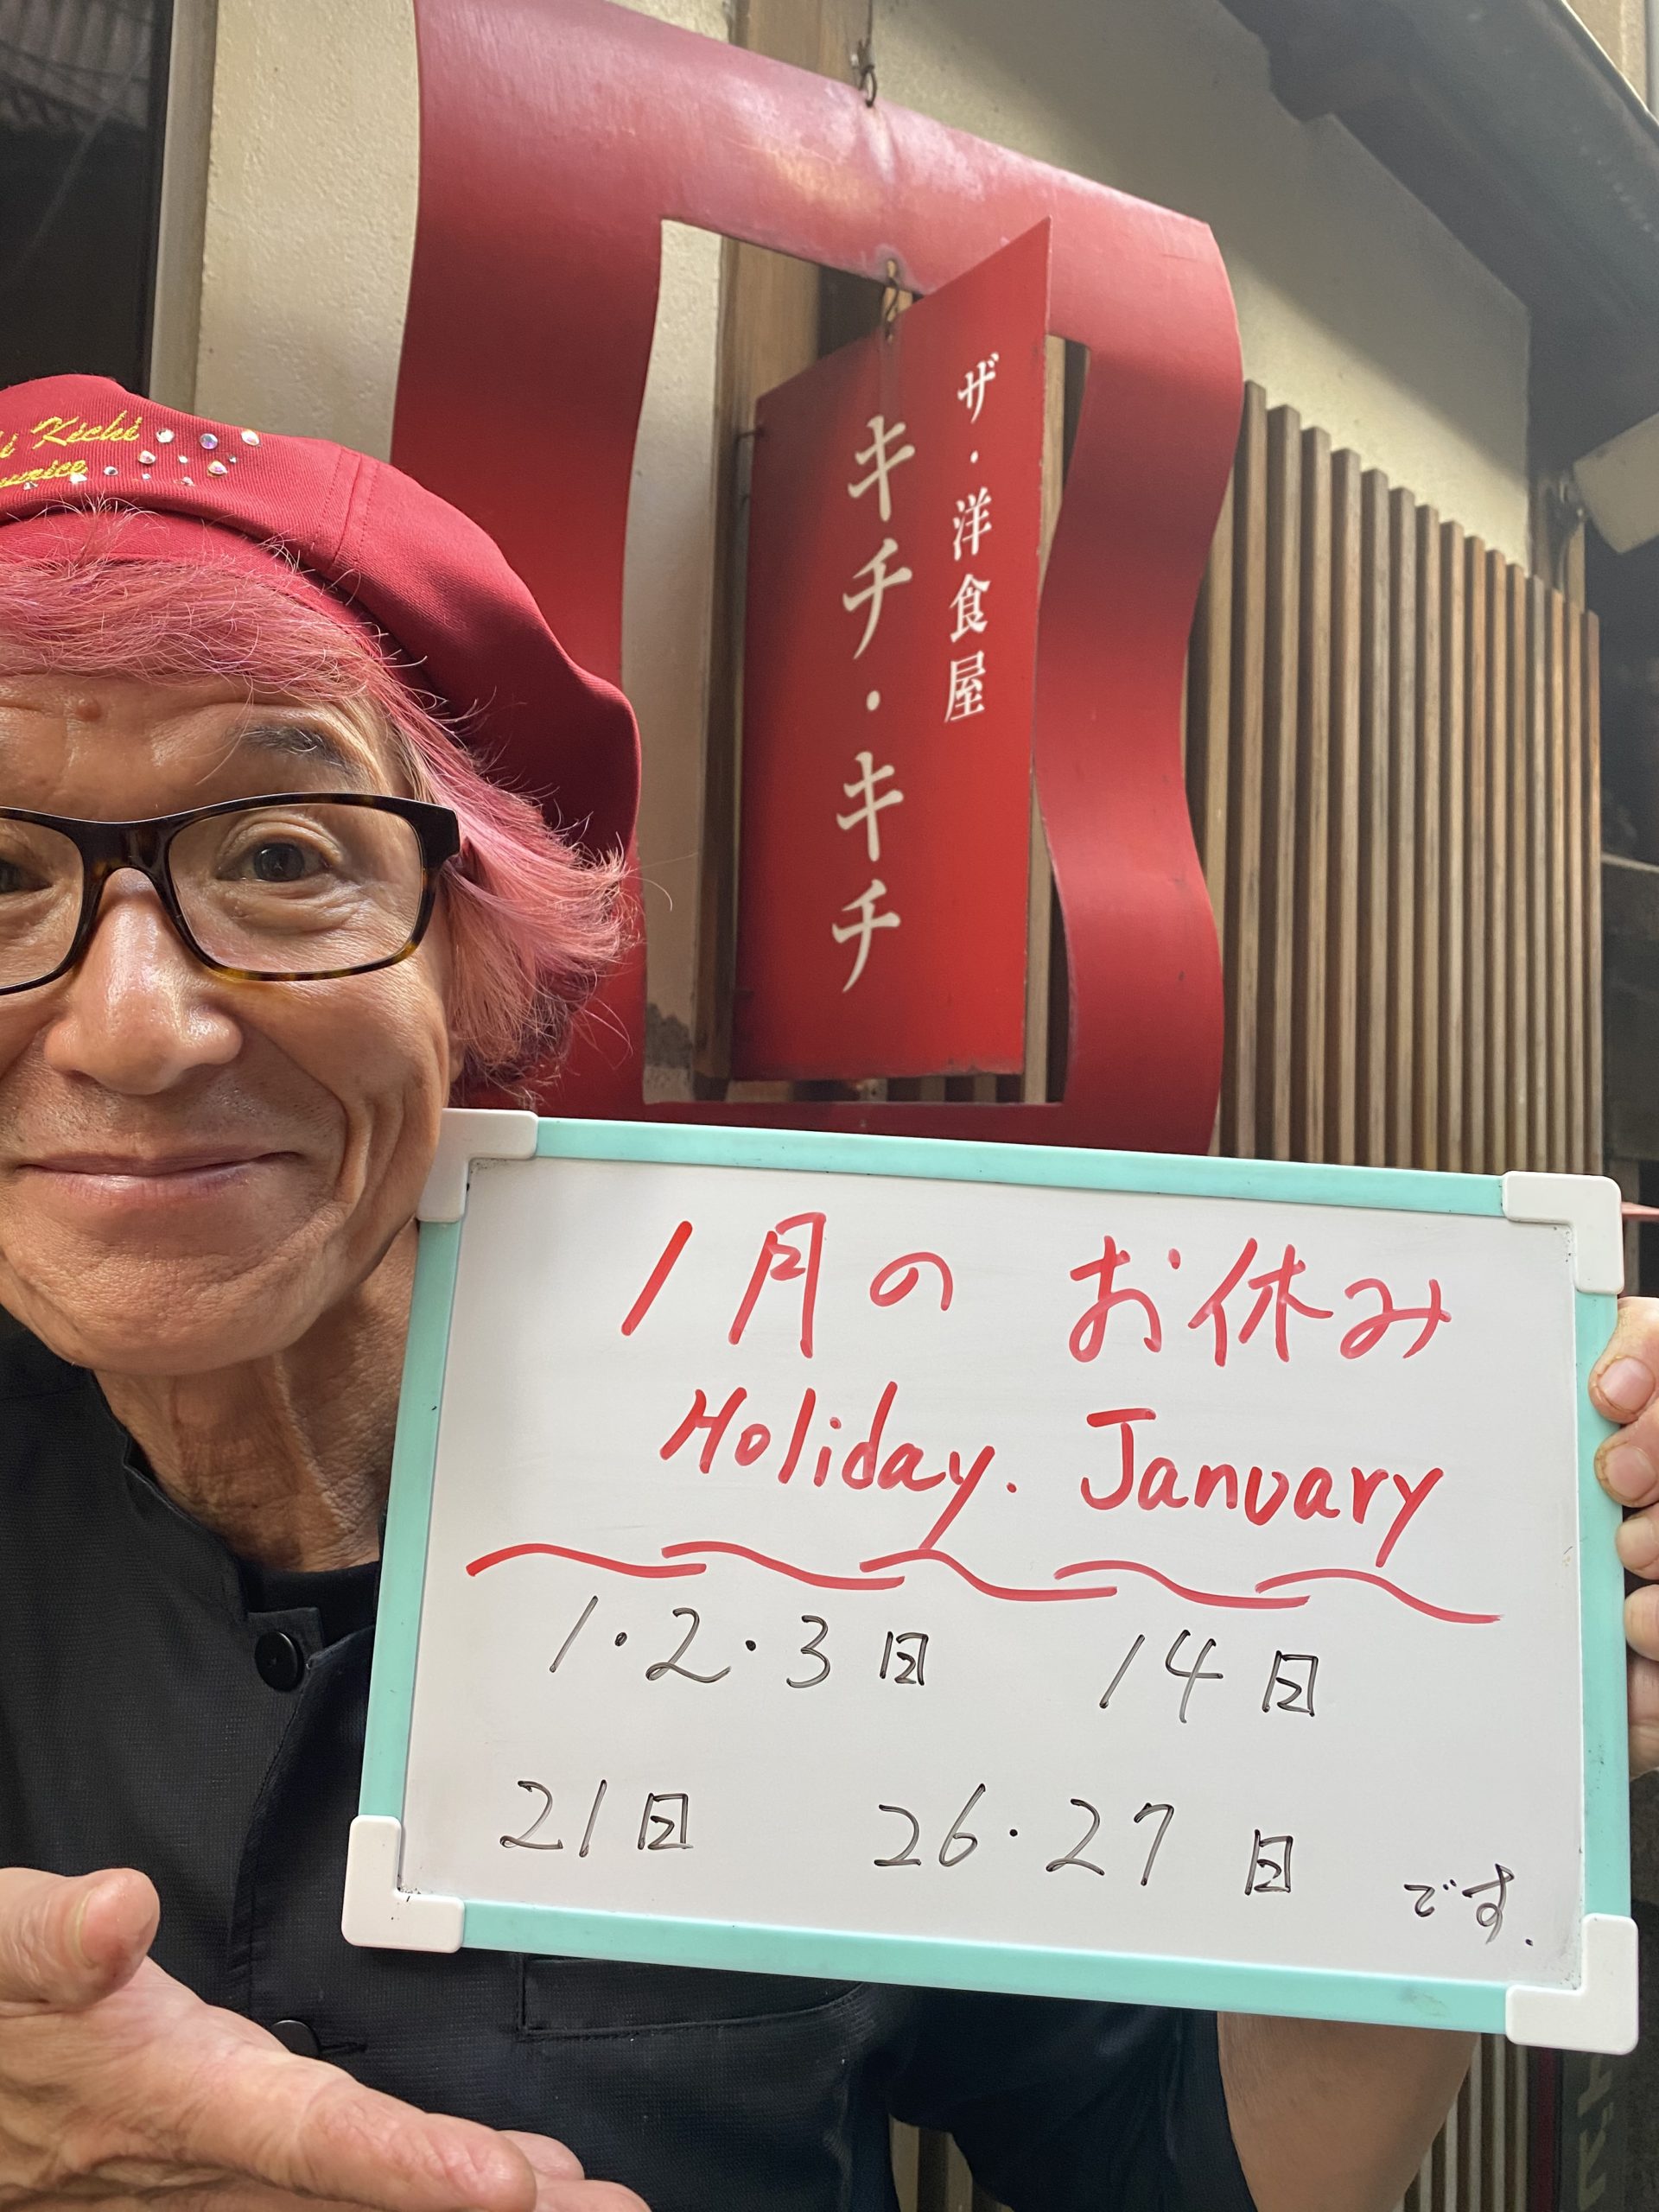 i Kichi
urice
ザ・洋食屋
キチ・キチ
1月の お休み
Holiday. January
1・2・3日 14日
21日 26・27日 です.